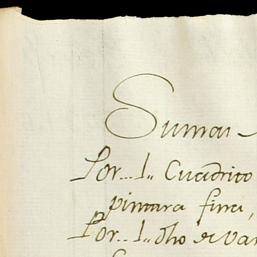 Suman
Por... 1.. Cuadrito
pintura fina,
Por.. 1.. dho de Va